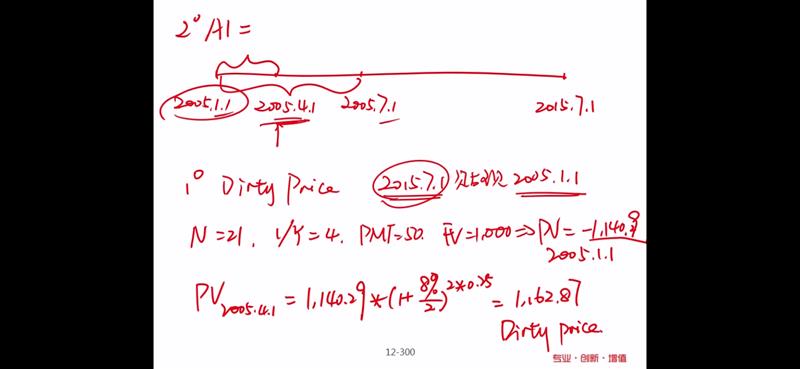 2° AI =
2005.1.1 2005.4.1 2005.7.1 2015.7.1
1° Dirty Price 2015.7.1 2005.1.1
N = 21, I/Y = 4. PMT = 50. FV = 1,000 ⇒ PV = -1,140.29
2005.1.1
PV2005.4.1 = 1,140.29 * (1 + 8%/2)^2*0.25 = 1,162.87
Dirty price.
12-300
专业·创新·增值